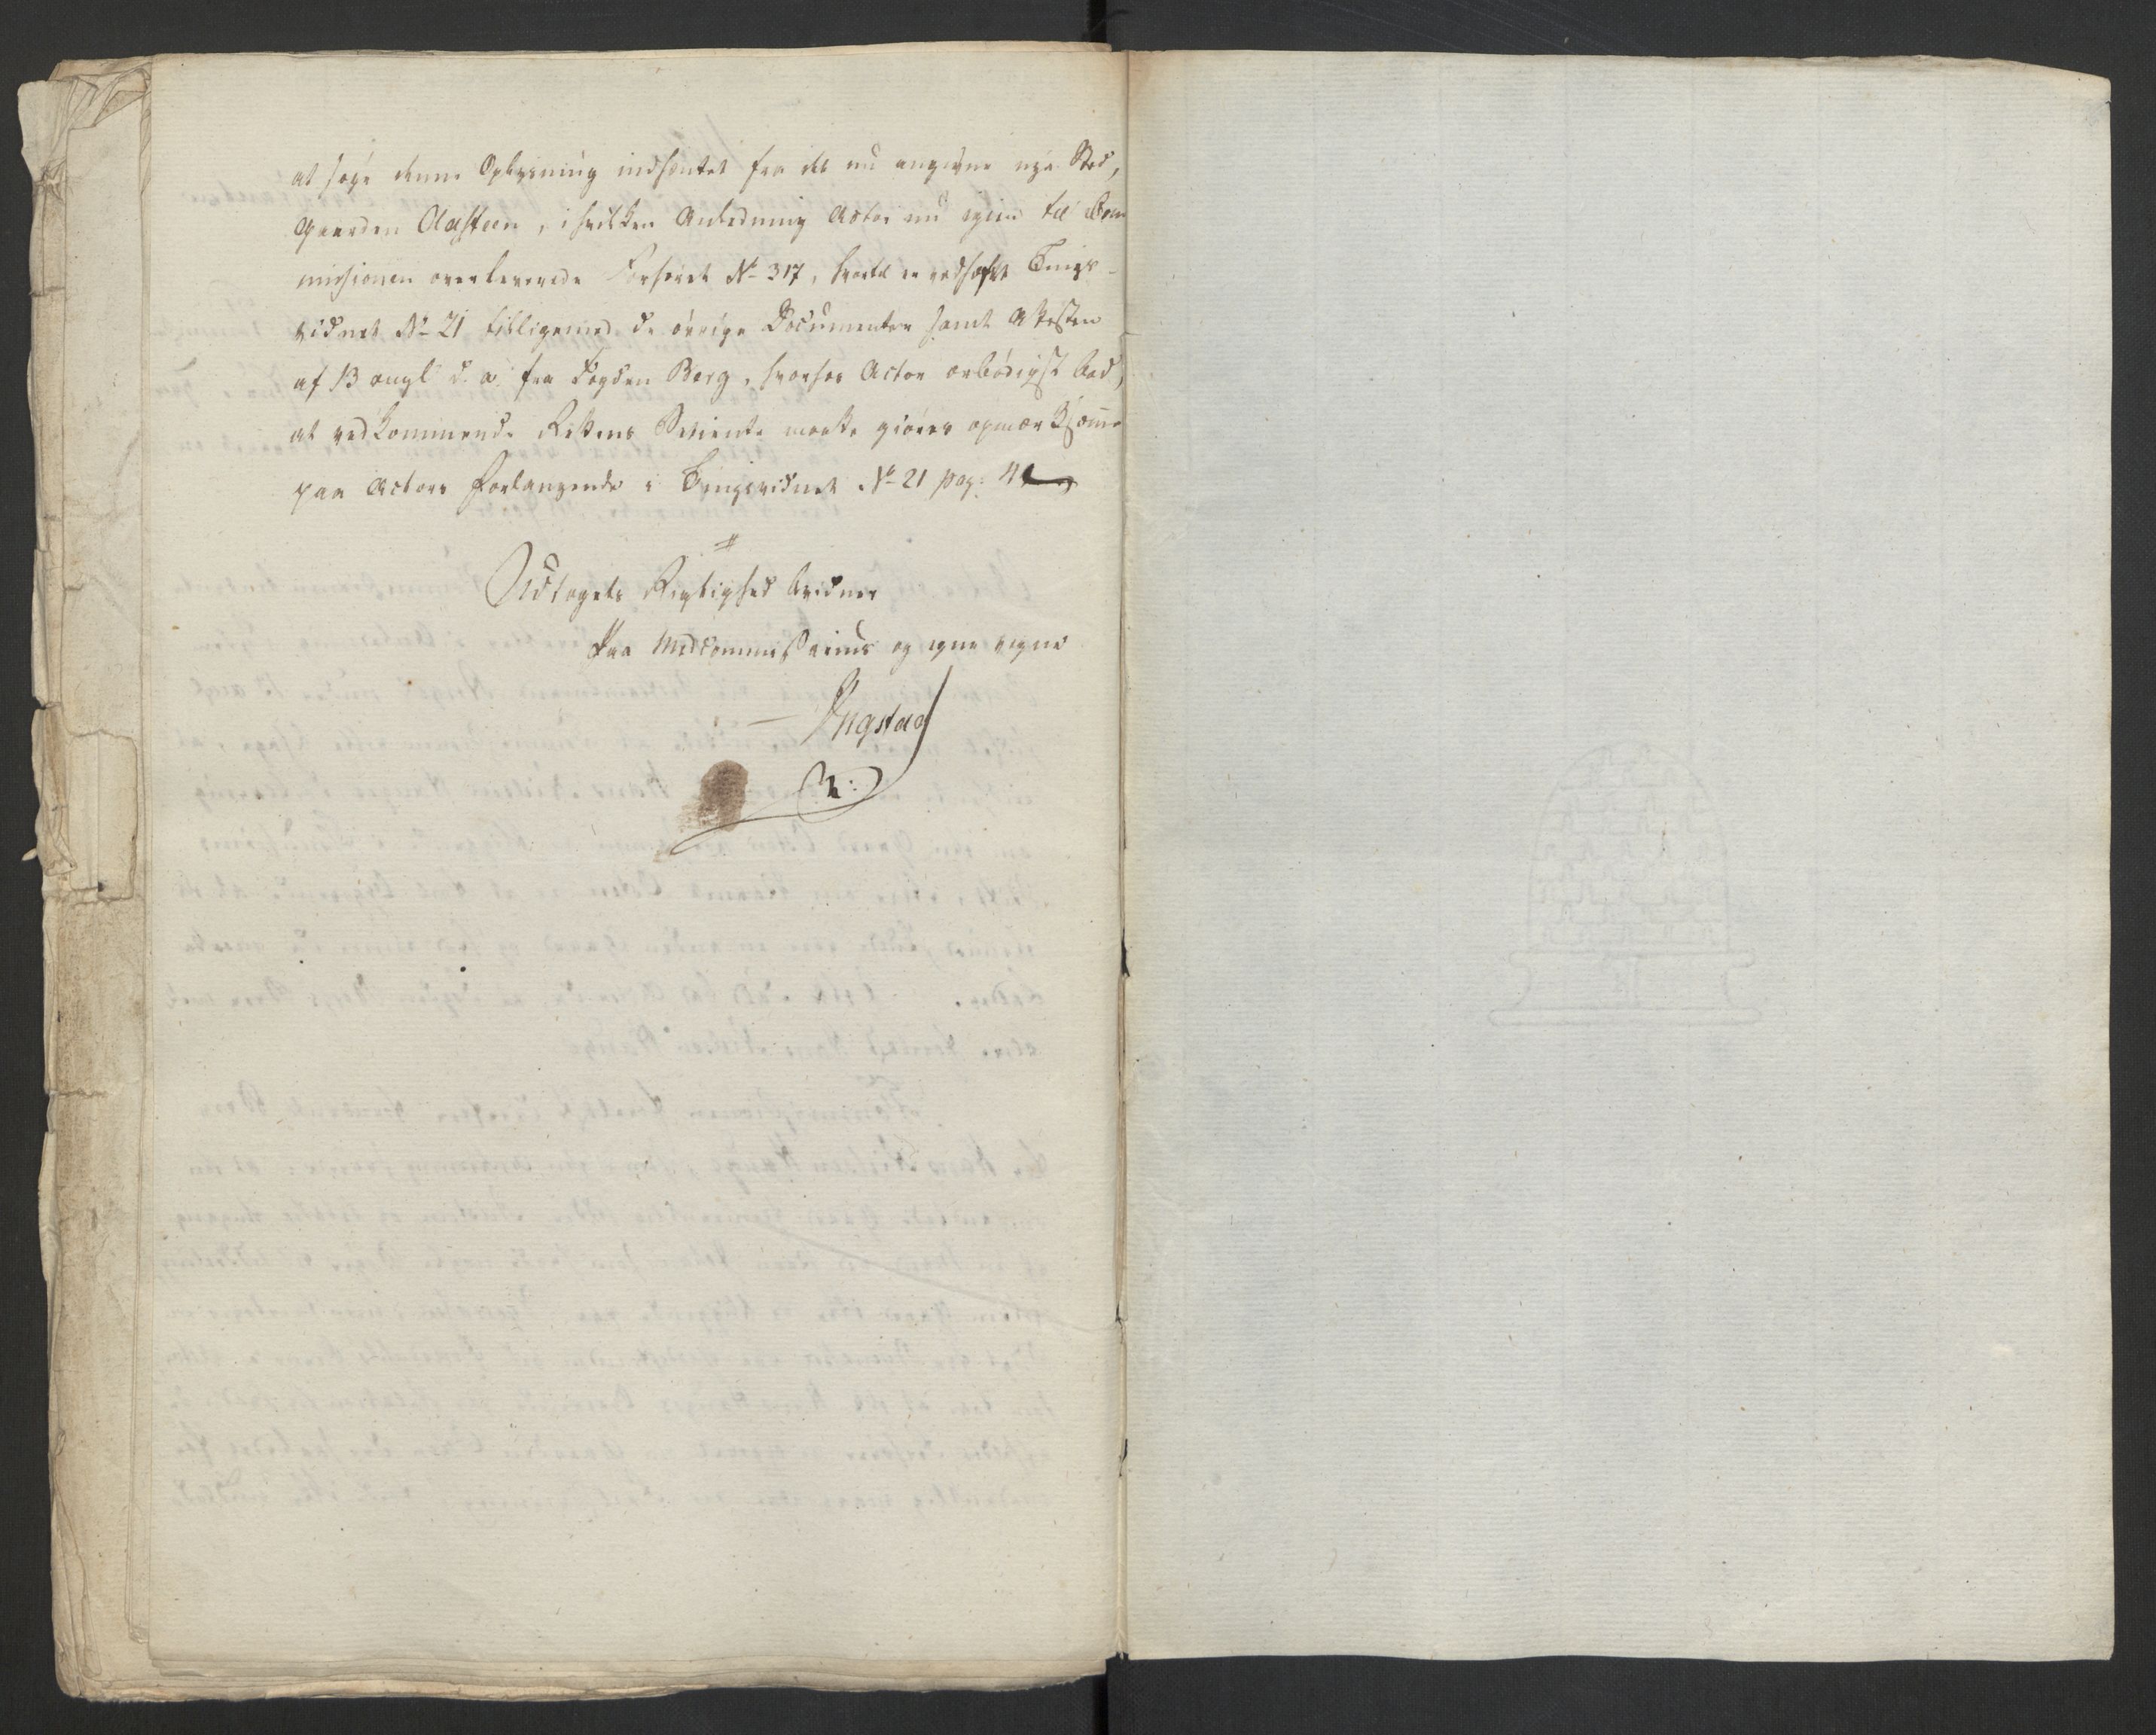 at søge denne Oplysning indhentet fra det nu angivne nye Sted,
Gaarden Aasteen, i hvilken Anledning Actor nu igien til Com
missionen overleverede Forhøret No 317, hvortil er vedhæftet Tings-
vidnet No 21 tilligemed de øvrige Documenter samt Attesten
af 13 augl d. a. fra Fogden Berg, hvorhos Actor ærbødigst bad,
at vedkommende Rettens Betiente maatte giøres opmærksomme
paa Actors Forlangende i Tingsvidnet No 21 pag: 4
Udtogets Rigtighed bevidner
Paa Medcommissairius og egne vegne
Ingstad